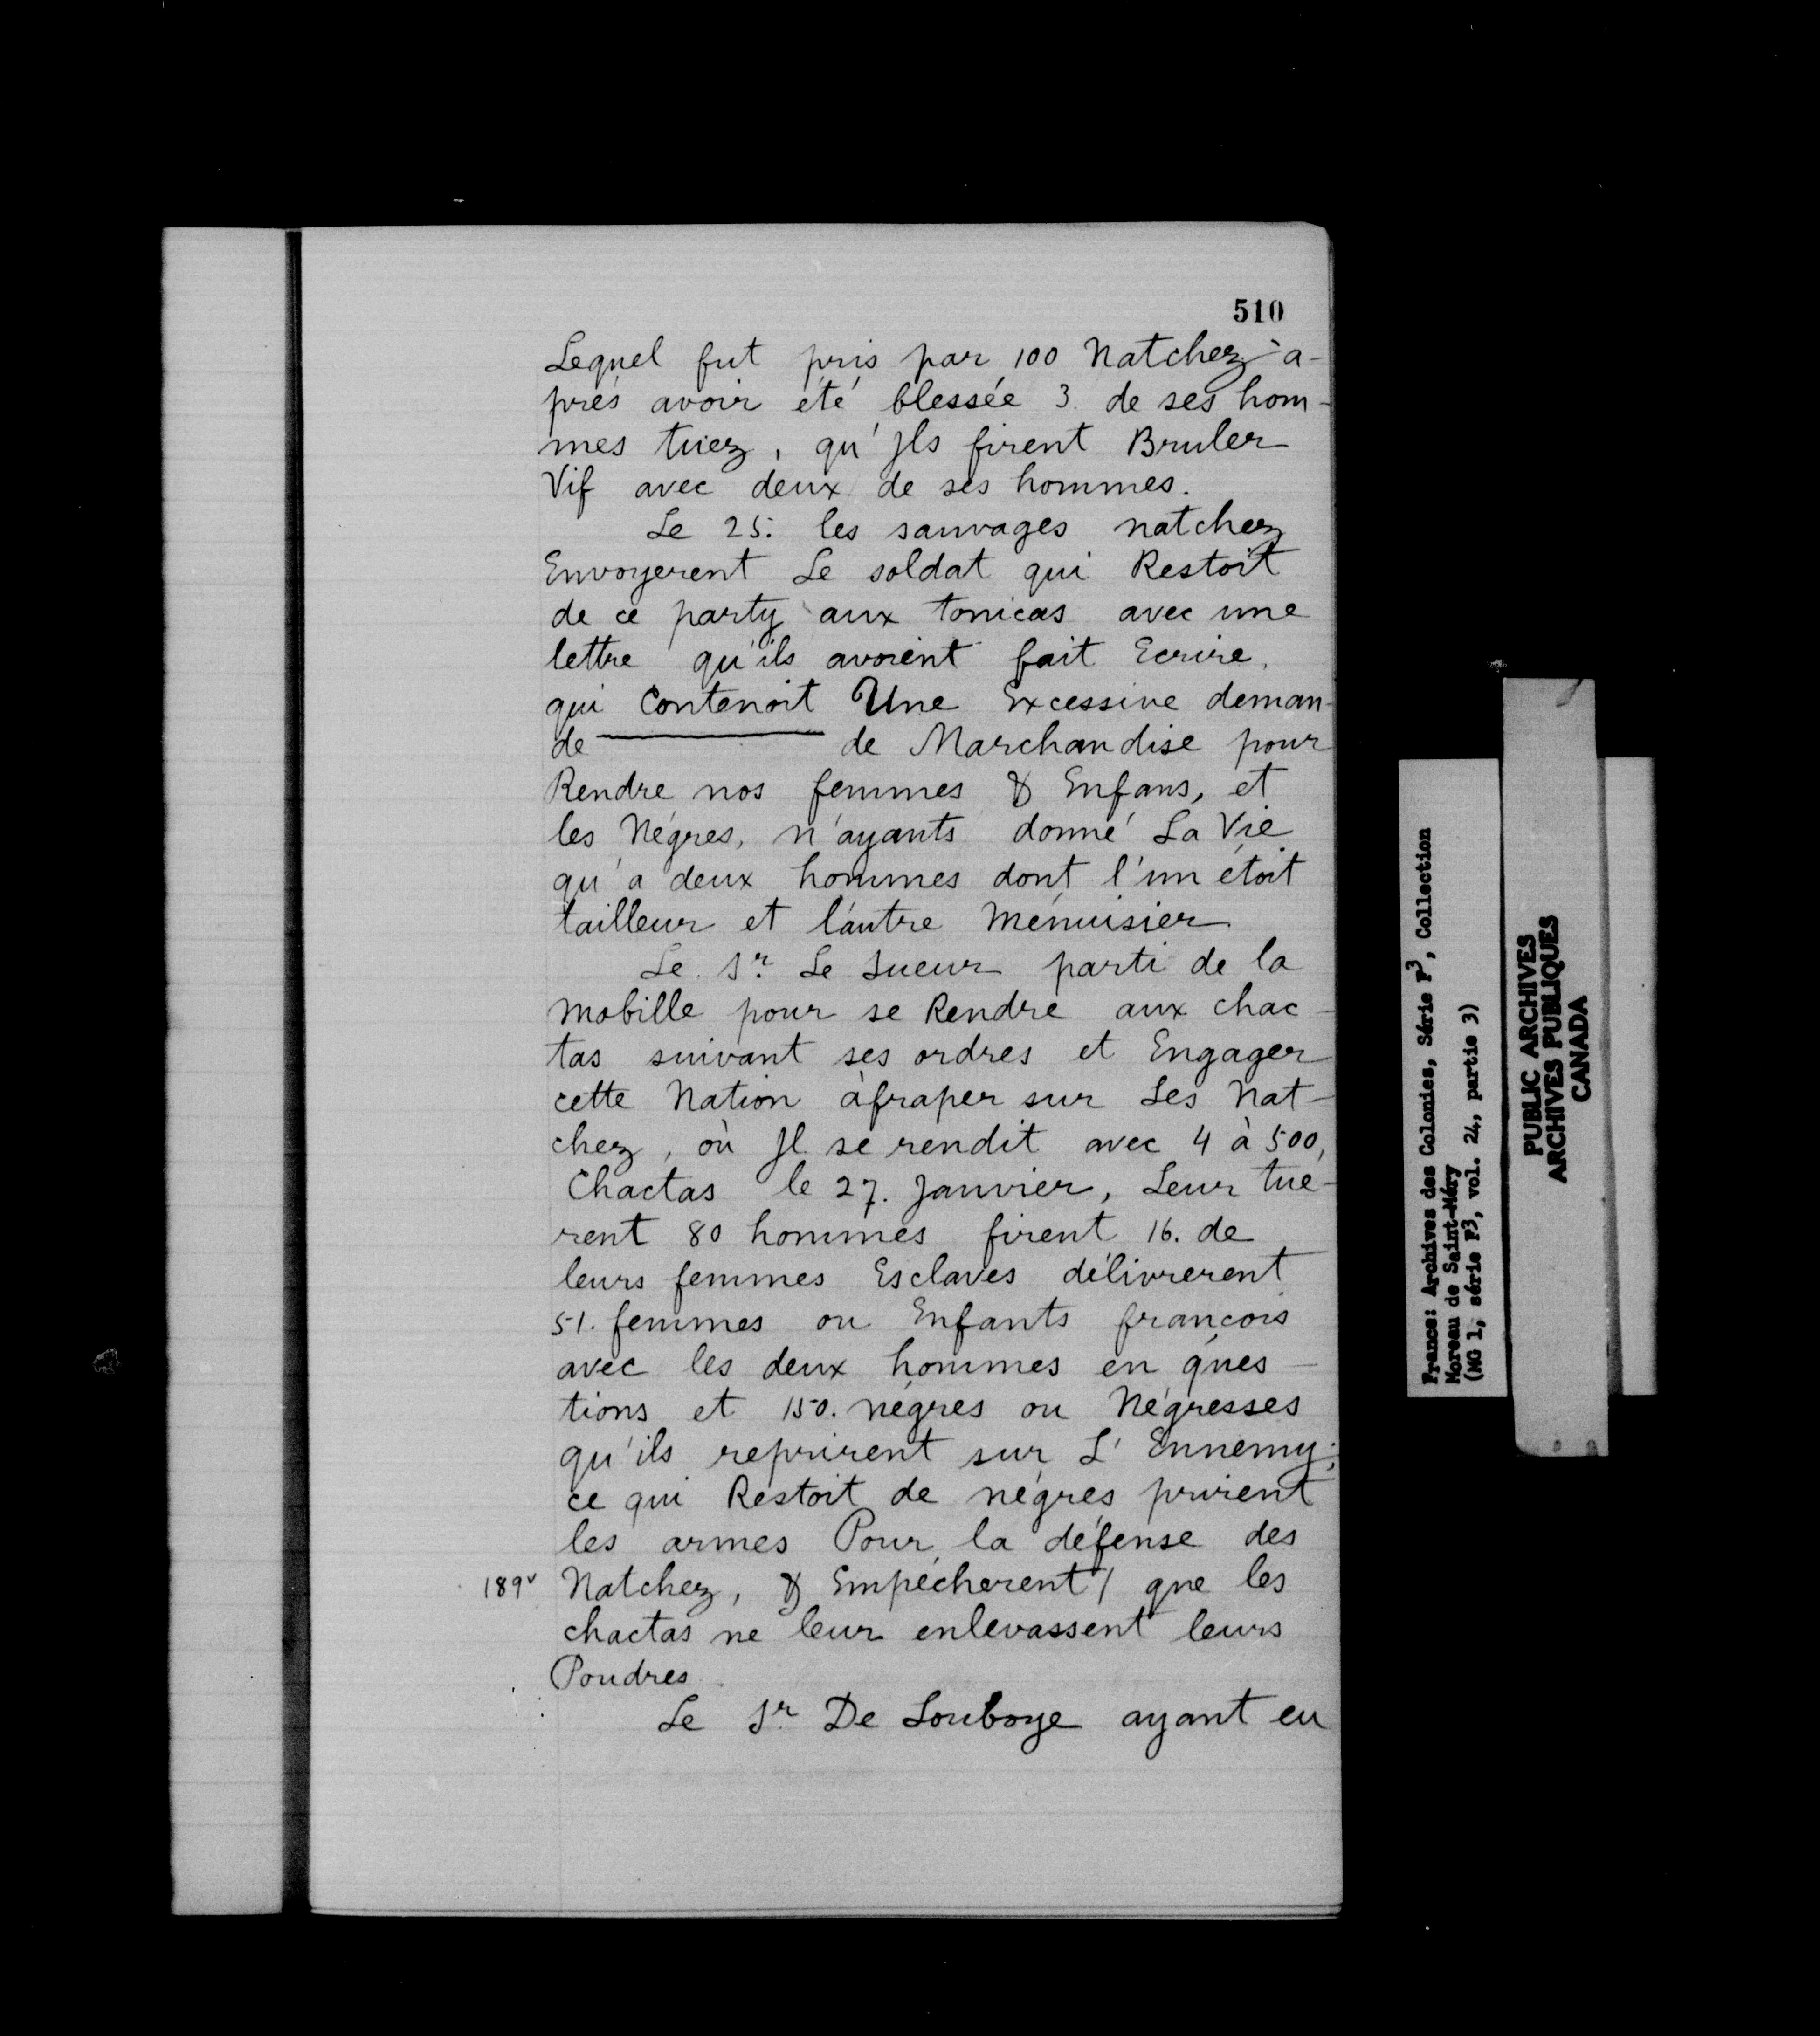 510
Lequel fut pris par 100 Natchez a-
prés avoir été blessée 3. de ses hom-
mes tüez, qu'Jls firent Bruler
Vif avec deux de ses hommes.
Le 25. les sauvages natchez
Envoyerent Le soldat qui Restoit
de ce party aux tonicas avec une
lettre qu'ils avoient fait Ecrire,
qui Contenoit Une Excessive deman-
de de Marchandise pour
Rendre nos femmes & Enfans, et
les Négres, n'ayants donné La Vie
qu'a deux hommes dont l'un étoit
tailleur et l'autre Ménuisier
Le Sr. Le Sueur parti de la
Mobille pour se Rendre aux chac-
tas suivant ses ordres et Engager
cette Nation àfraper sur Les Nat-
chez, où Jl se rendit avec 4 à 500,
Chactas le 27. Janvier, Leur tue-
rent 80 hommes firent 16. de
leurs femmes Esclaves délivrerent
51. femmes ou Enfants francois
avec les deux hommes en ques-
tions et 150. négres ou Négresses
qu'ils reprirent sur L'Ennemy;
ce qui Restoit de négres prirent
les armes Pour la défense des
189v Natchez, & Empécherent/ que les
chactas ne leur enlevassent leurs
Poudres.
Le Sr. De Louboye ayant eu
France: Archives des Colonies, Série F3, Collection
Moreau de Saint-Méry
(MG 1, série F3, vol. 24, partie 3)
PUBLIC ARCHIVES
ARCHIVES PUBLIQUES
CANADA